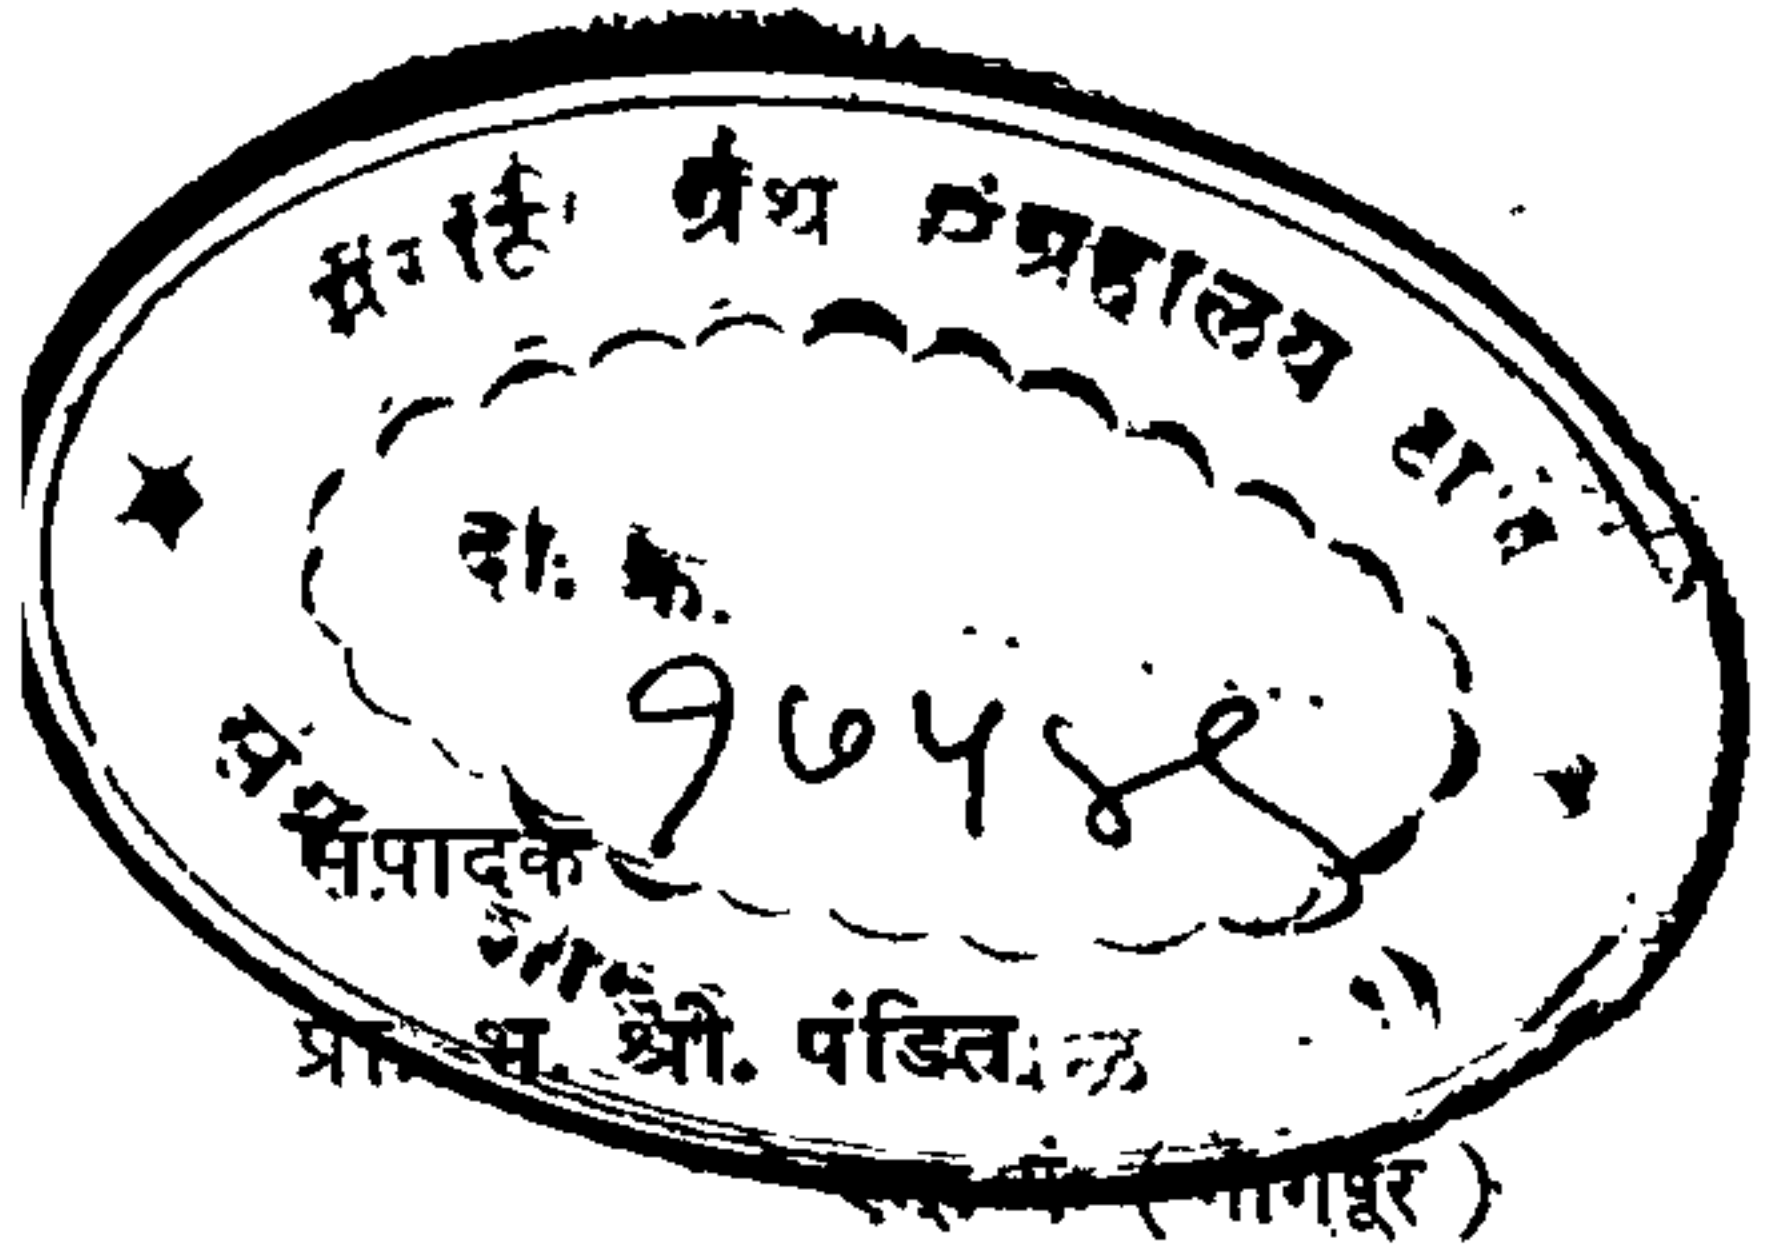 मराठी ग्रंथ संग्रहालय ठाणें
दा. क्र.
१७५४९
संपादक
प्रा. भ. श्री. पंडित
( नागपूर )